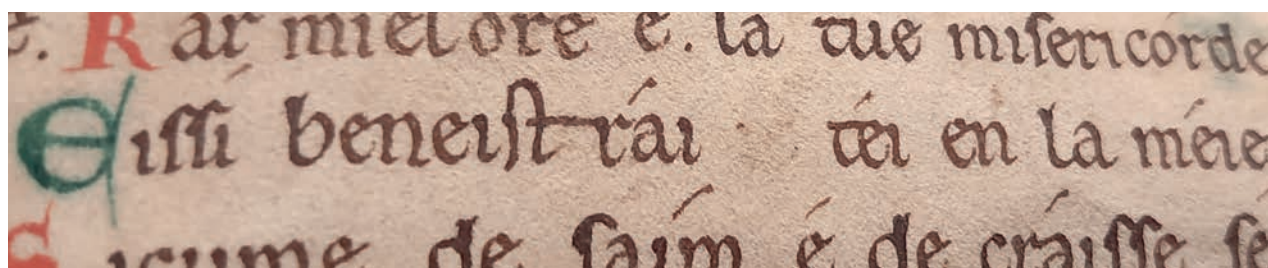 e. Kar mielore e. la tue misericorde
Eissi beneistrai tei en la meie
Sicume de saim é de craisse se